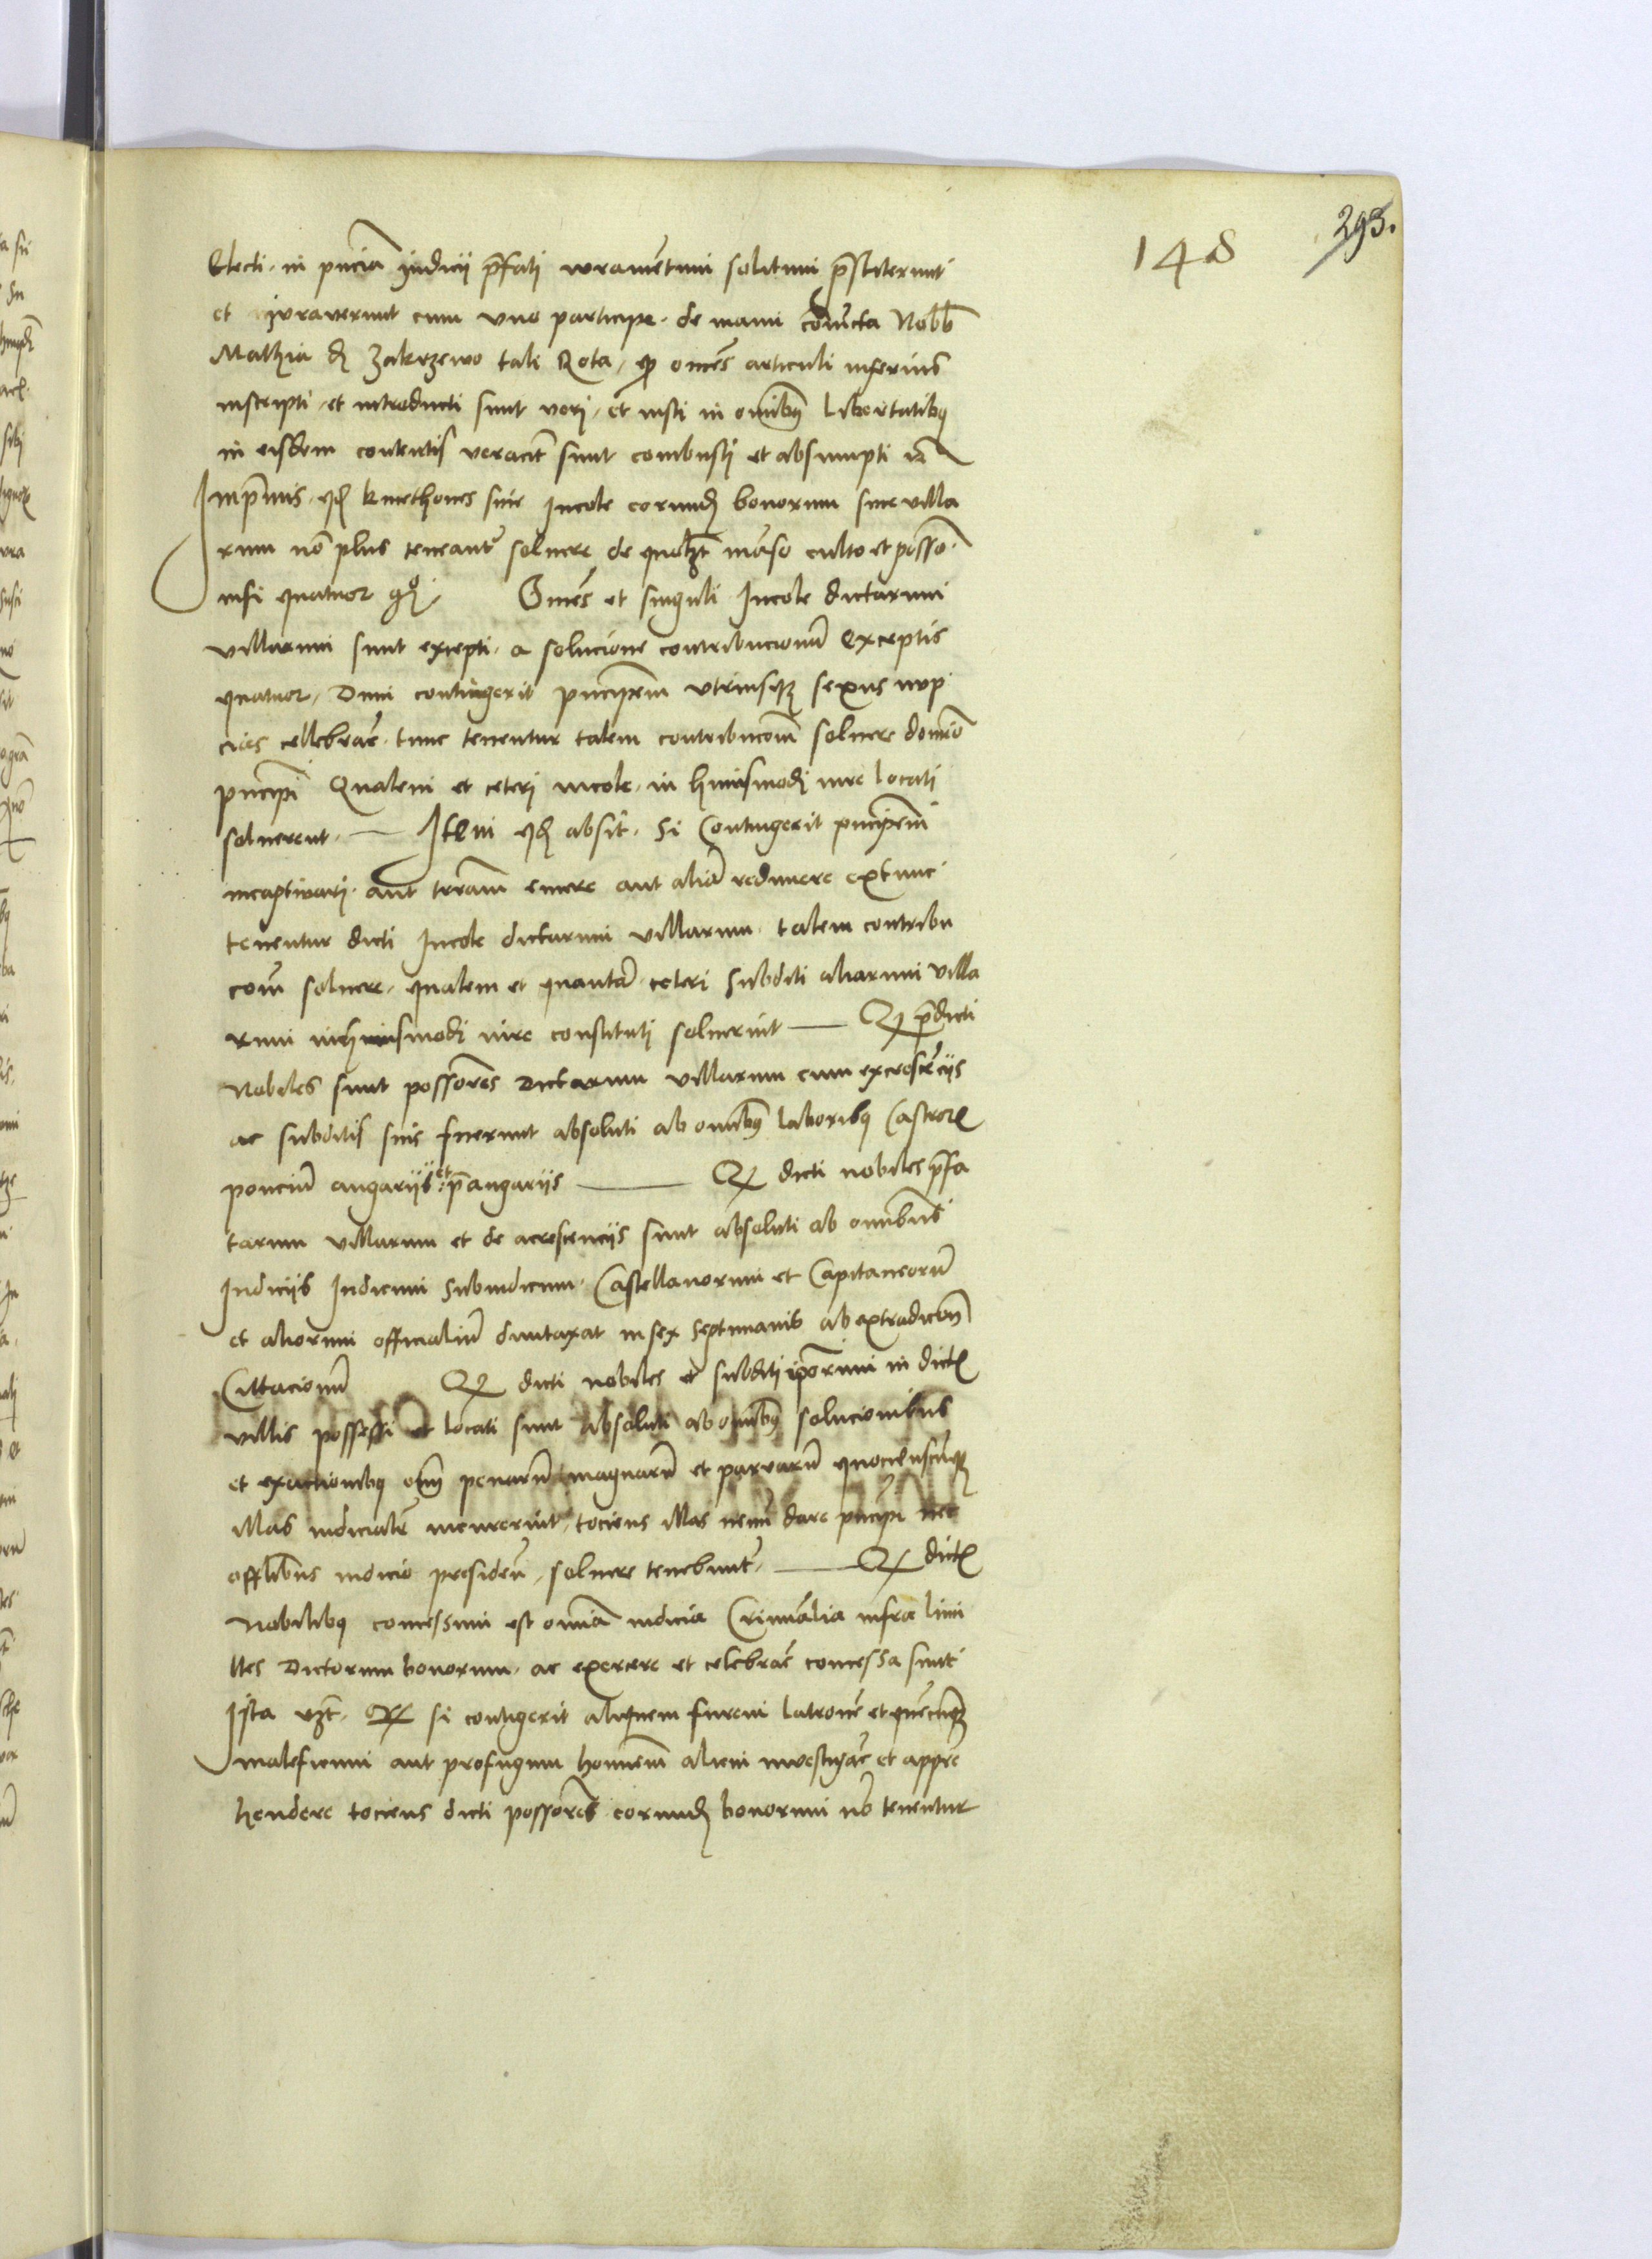 148
293.
Electi in pnciā Judicii p̄fati iuramētum solitum p̄stiterunt
et iuraverunt cum uno participe de manu coniūcta Nobb
Mathia de Zakrzewo tali Rota, qͣ om̄es articuli inferius
inscripti et introducti sunt veri, et iusti in om̄ibus libertatibus
in eisdem contentis veracit̄ sunt combusti et absumpti
Inp̄mis qd kmethones sive Incole eorund bonorum sive villa
rum nō plus teneant̄ soluere de quolzt māso culto et posso
nisi quatuor gͦ Om̄es et singuli Incole dictarum
villarum sunt excepti a solucione contribucionū exceptis
quatuor, Dum contingerit pncipem utriusque sexus nup
cias cellebrar̄ tunc tenentur talem contribucōm soluere domīo
pncipi Qualem et ceteri incole in huiusmodi iure locati
soluerent Item qd absit Si Contingerit pncipem
incaptivari aut terrām emere aut aliā redimere extunc
tenentur dicti Incole dictarum villarum talem contribu
com̄ soluere qualem et quantā ceteri Subditi aliarum villa
rum in huiusmodi iure constituti soluerint Q p̄dicti
Nobiles sunt possores Dictarum villarum cum excrescēciis
ac subditis suis fuerunt absoluti ab om̄ibus laboribus Castror
ponciū angariis et p̄angariis Q dicti nobiles p̄fa
tarum villarum et de acrescenciis sunt absoluti ab om̄ibus
Iudiciis Iudicum Subiudicum Castellanorum et Capitaneorū
et aliorum officialiū dumtaxat in sex septimanis ab extradicōn
Cittacionū Q dicti nobiles et subditi ip̄orum in dict
villis possessi et locati sunt absoluti ab om̄ibus solucionibus
et exactionibus om̄ penarū magnarū et parvarū quociēscūque
illas iudicialr̄ incurrerint tociens illas nem̄ dare pncipi nec
offlibus iudicio presideñ soluere tenebunt̄ Q dict
Nobilibus concessum est om̄ia iudicia Criminalia infra limi
tes Dictorum bonorum ac exercere et celebrar̄ concessa sunt
Ista vzt Q si contigerit aliquem furem latronē et quēcūque
maleficum aut profugum hominem alicui investigar̄ et appre
hendere tociens dicti possores eorund bonorum nō tenentur